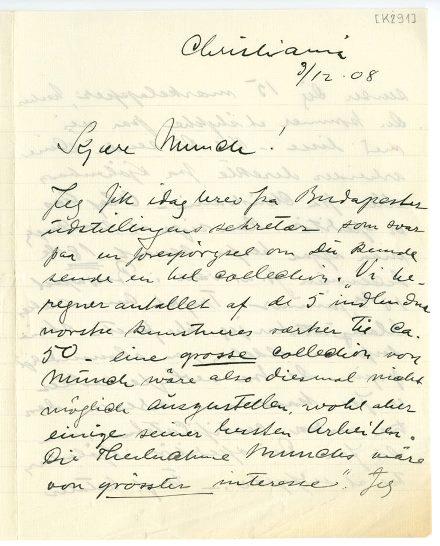 [K291]
Christiania
9/12 08
Kjære Munch!
Jeg fik idag brev fra Budapester
udstillingens sekretær som svar
paa en forespörgsel om Du kunde
sende en hel collection. "Vi be-
regner antallet af de 5 indbudne
norske kunstneres værker til ca.
50 – eine grosse collection von
Munch wäre also diesmal nicht
möglich auszustellen, wohl aber
einige seiner besten Arbeiten.
Die Theilnahme Munchs wäre
von grösster interesse". Jeg